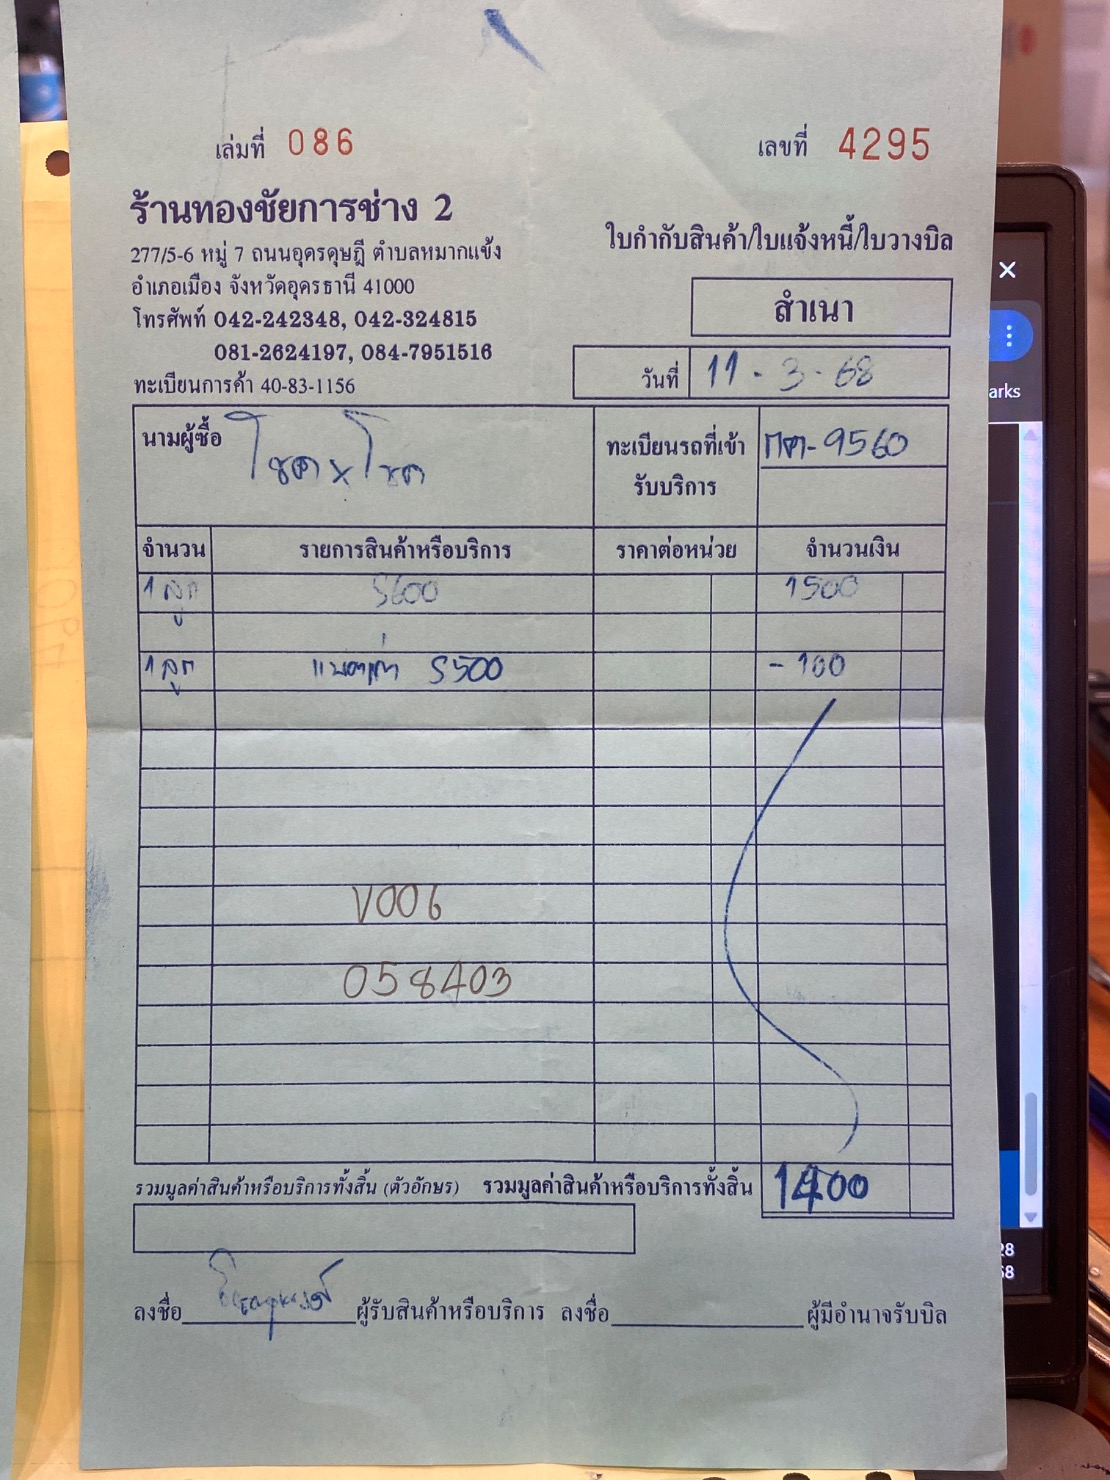 เล่มที่ 086
เลขที่ 4295
ร้านทองชัยการช่าง 2
277/5-6 หมู่ 7 ถนนอุดรดุษฎี ตำบลหมากแข้ง
อำเภอเมือง จังหวัดอุดรธานี 41000
โทรศัพท์ 042-242348, 042-324815
081-2624197, 084-7951516
ทะเบียนการค้า 40-83-1156
ใบกำกับสินค้า/ใบแจ้งหนี้/ใบวางบิล
สำเนา
วันที่ 11-3-68
นามผู้ซื้อ โชคxโชค
ทะเบียนรถที่เข้ารับบริการ กค-9560
จำนวน รายการสินค้าหรือบริการ ราคาต่อหน่วย จำนวนเงิน
1 ลูก S600 1500
1 ลูก แบตเก่า S500 -100
V006
058403
รวมมูลค่าสินค้าหรือบริการทั้งสิ้น (ตัวอักษร) รวมมูลค่าสินค้าหรือบริการทั้งสิ้น 1400
ลงชื่อ ผู้รับสินค้าหรือบริการ ลงชื่อ ผู้มีอำนาจรับบิล
arks